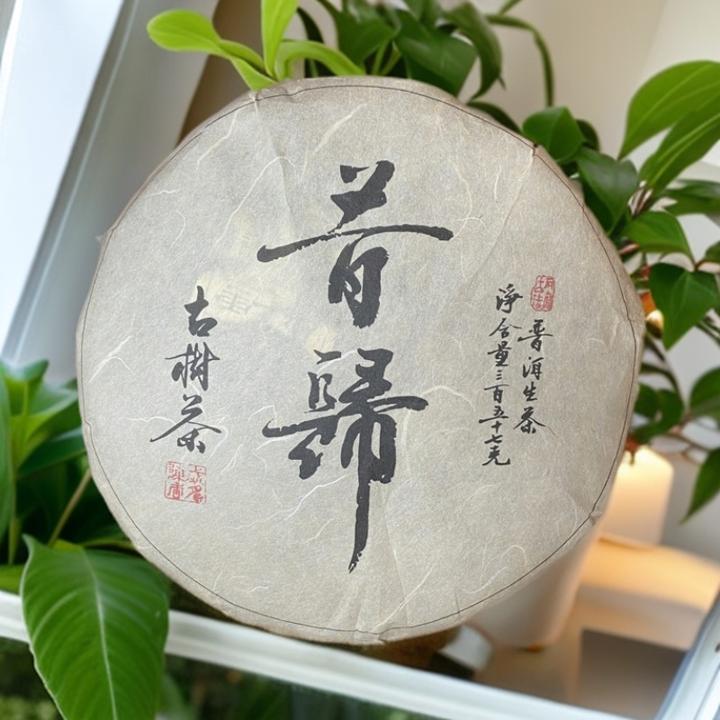 普洱生茶
淨含量三百五十七克
昔歸
古樹茶